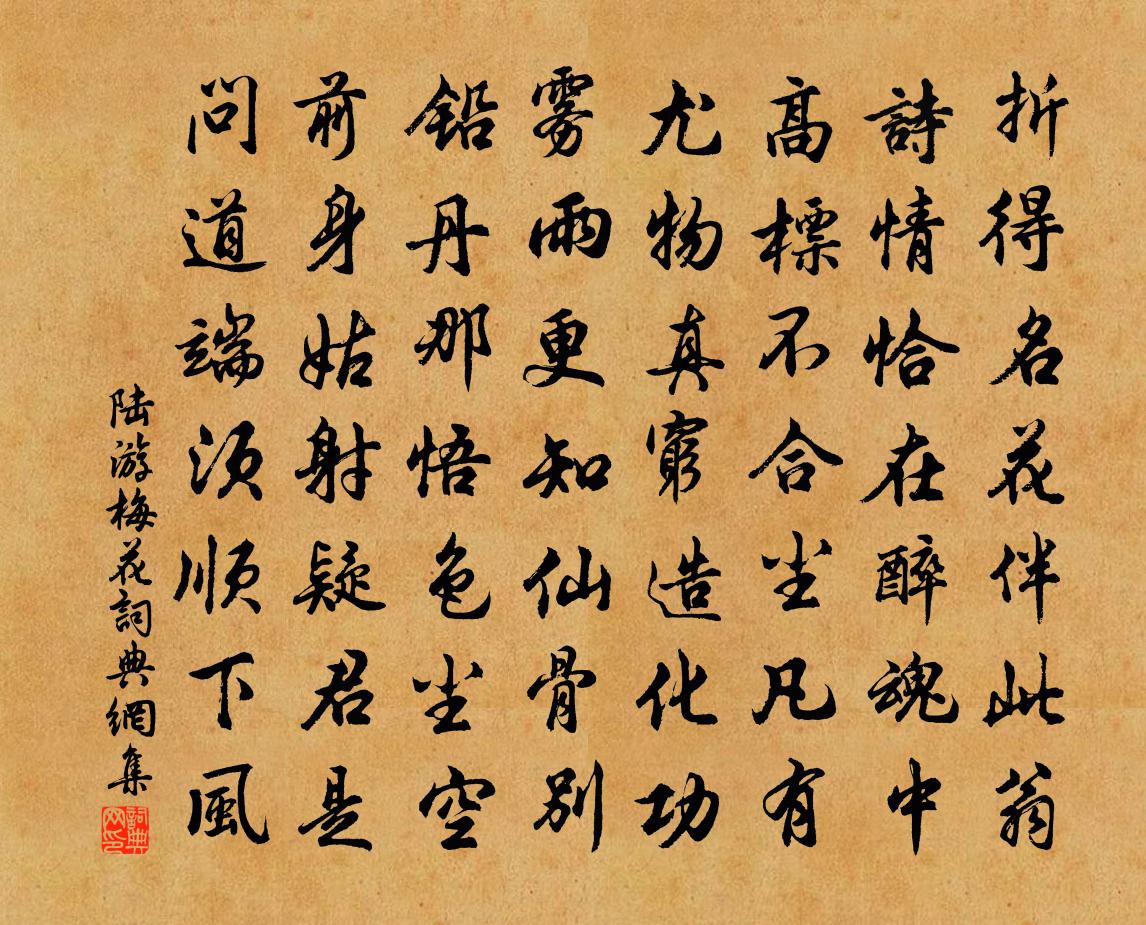 折得名花伴此翁
詩情恰在醉魂中
高標不合塵凡有
尤物真窮造化功
雾雨更知仙骨别
铅丹那悟色塵空
前身姑射疑君是
問道端須順下風
陆游梅花詞典網集
詞典网印